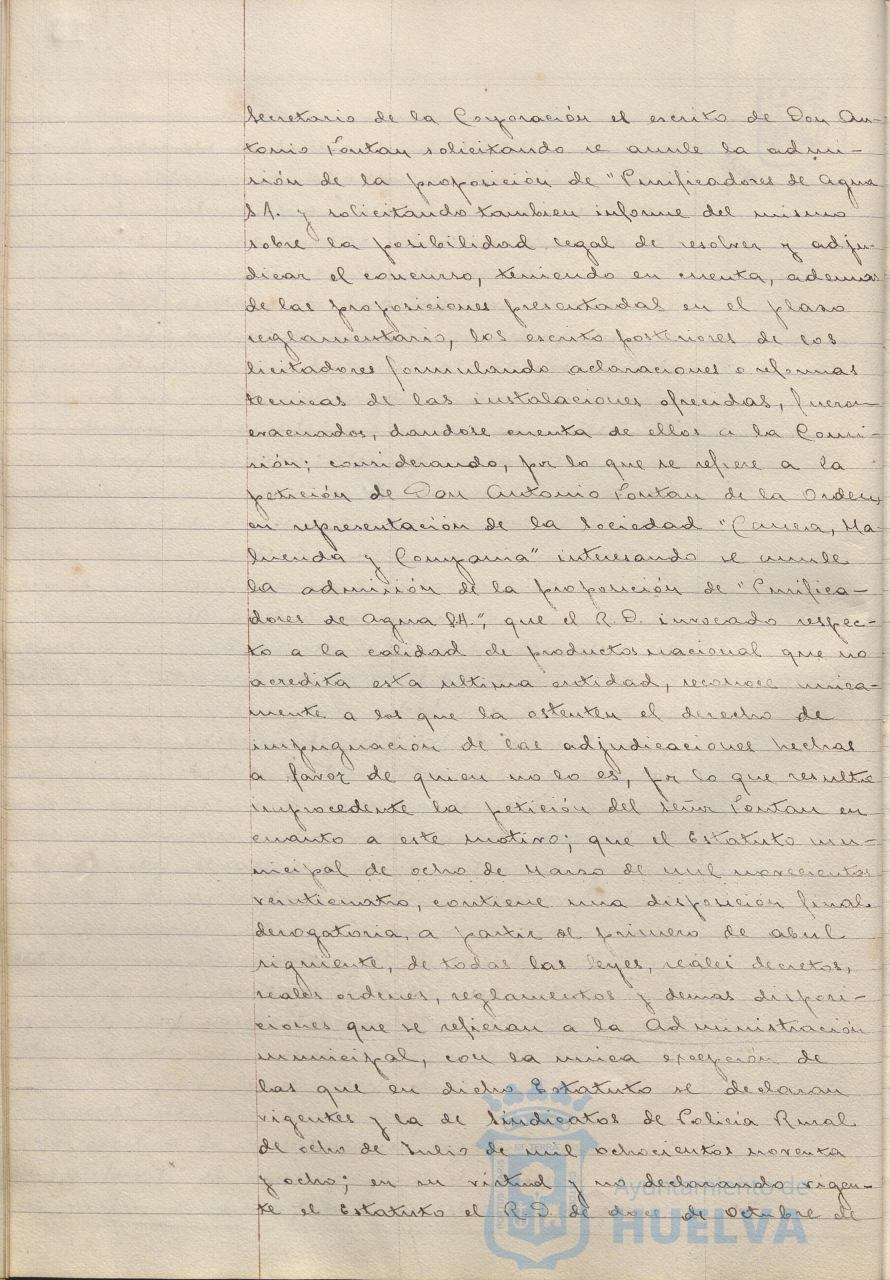 Secretario de la Corporación el escrito de Don An-
tonio Fontan solicitando se anule la admi-
sión de la proposición de "Purificadores de Agua
S A. y solicitando tambien informe del mismo
sobre la posibilidad legal de resolver y adju-
dicar el concurso, teniendo en cuenta, ademas
de las proposiciones presentadas en el plazo
reglamentario, los escrito posteriores de los
licitadores formulando aclaraciones o reformas
tecnicas de las instalaciones ofrecidas, fueron
evacuados, dandose cuenta de ellos a la Comi-
sión; considerando, por lo que se refiere a la
petición de Don Antonio Fontan de la Orden,
en representación de la Sociedad "Carrera, Ma-
luenda y Compañia" interesando se anule
la admisión de la proposición de "Purifica-
dores de Agua S.A.", que el R.D. invocado respec-
to a la calidad de productos nacional que no
acredita esta ultima entidad, reconoce unica-
mente a los que la ostenten el derecho de
impugnación de las adjudicaciones hechas
a favor de quien no lo es, por lo que resulta
improcedente la petición del señor Fontan en
cuanto a este motivo; que el Estatuto mu-
nicipal de ocho de Marzo de mil novecientos
veinticuatro, contiene una disposición final
derogatoria, a partir de primero de abril
siguiente, de todas las leyes, reales decretos,
reales ordenes, reglamentos y demas disposi-
ciones que se refieran a la Administración
municipal, con la unica excepción de
las que en dicho Estatuto se declaran
vigentes y la de Sindicatos de Policía Rural
de ocho de Julio de mil ochocientos noventa
y ocho; en su virtud y no declarando vigen-
te el Estatuto el R.D. de doce de Octubre de
Ayuntamiento de
HUELVA